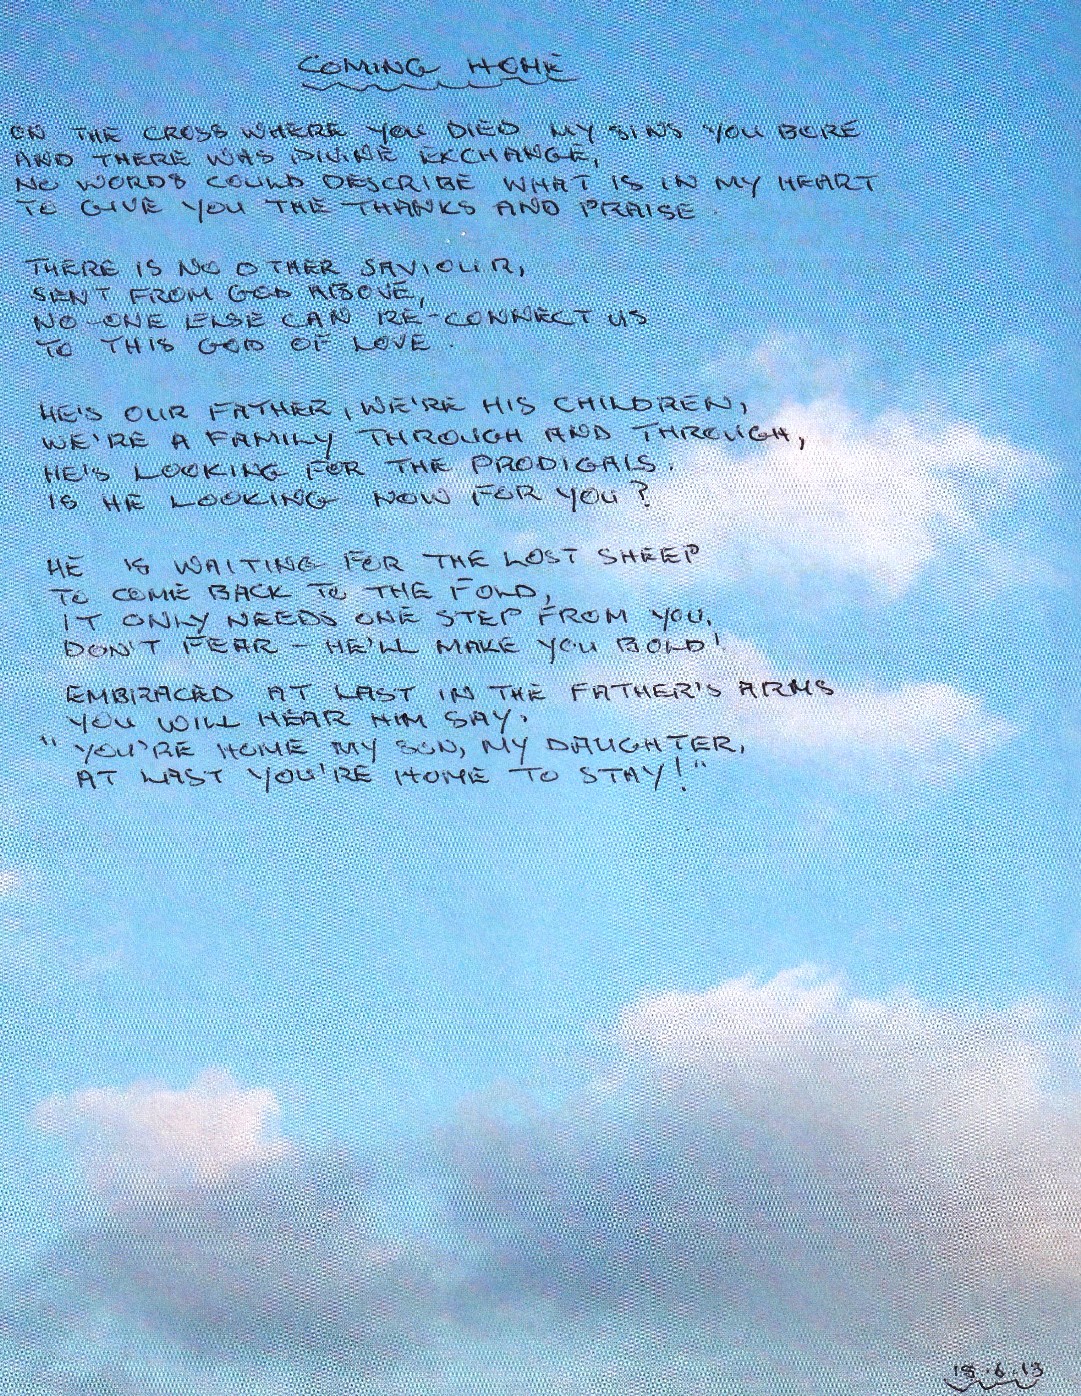 COMING HOME
ON THE CROSS WHERE YOU DIED MY SINS YOU BORE
AND THERE WAS DIVINE EXCHANGE,
NO WORDS COULD DESCRIBE WHAT IS IN MY HEART
TO GIVE YOU THE THANKS AND PRAISE.
THERE IS NO OTHER SAVIOUR,
SENT FROM GOD ABOVE,
NO-ONE ELSE CAN RE-CONNECT US
TO THIS GOD OF LOVE.
HE'S OUR FATHER, WE'RE HIS CHILDREN,
WE'RE A FAMILY THROUGH AND THROUGH,
HE'S LOOKING FOR THE PRODIGALS.
IS HE LOOKING NOW FOR YOU?
HE IS WAITING FOR THE LOST SHEEP
TO COME BACK TO THE FOLD,
IT ONLY NEEDS ONE STEP FROM YOU,
DON'T FEAR - HE'LL MAKE YOU BOLD!
EMBRACED AT LAST IN THE FATHER'S ARMS
YOU WILL HEAR HIM SAY.
"YOU'RE HOME MY SON, MY DAUGHTER,
AT LAST YOU'RE HOME TO STAY!"
18.6.13